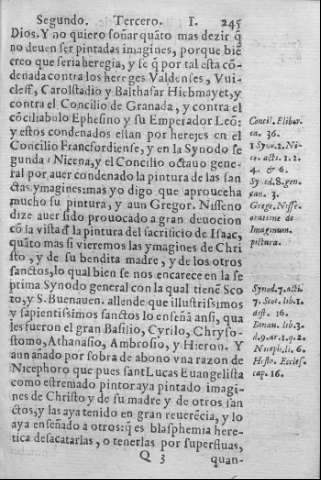 Segundo. Tercero. I. 245
Dios. Y no quiero soñar quãto mas dezir q̃
no deuen ser pintadas imagines, porque biẽ
creo que seria heregia, y se q̃ por tal esta cõ-
denada contra los hereges Valdenses, Vui-
cleff, Carolstadio y Balthasar Hiebmayet, y
contra el Concilio de Granada, y contra el
cõciliabulo Ephesino y su Emperador Leõ:
y estos condenados estan por herejes en el
Concilio Francfordiense, y en la Synodo se
gunda: Nicena, y el Concilio octauo gene-
ral por auer condenado la pintura de las san
ctas ymagines: mas yo digo que aproueсha
mucho su pintura, y aun Gregor. Nisseno
dize auer sido prouocado a gran deuocion
cõ la vista đ la pintura del sacrificio de Isaac,
quãto mas si vieremos las ymagines de Chri
sto, y de su bendita madre, y de los otros
sanctos, lo qual bien se nos encarece en la se
prima Synodo general con la qual tienẽ Sco
to, y S. Buenauen. allende que illustrissimos
y sapientissimos sanctos lo enseñã ansi, qua
les fueron el gran Basilio, Cyrilo, Chryso-
stomo, Athanasio, Ambrosio, y Hieron. Y
aun añado por sobra de abono vna razon de
Nicephoro que pues sant Lucas Euangelista
como estremado pintor aya pintado imagi-
nes de Christo y de su madre y de otros san
ctos, y las aya tenido en gran reuerẽcia, y lo
aya enseñado a otros: q̃ es blasphemia here-
tica desacatarlas, o tenerlas por superfluas,
Q 3 quan-
Concil. Elibar.
can. 36.
1 Syno. 2. Ni-
ce. acti. 1. 2.
4. & 6.
Sy. ed. 8. gen.
can. 3.
Grego. Nisse.
oratione de
Imaginum
pictura.
Synod. 7. acti.
7. Scot. lib. 3.
dist. 9.
Bonau. lib. 3.
d. 9. ar. 1. q. 2.
Niceph. li. 6.
Histo. Eccles.
cap. 16.